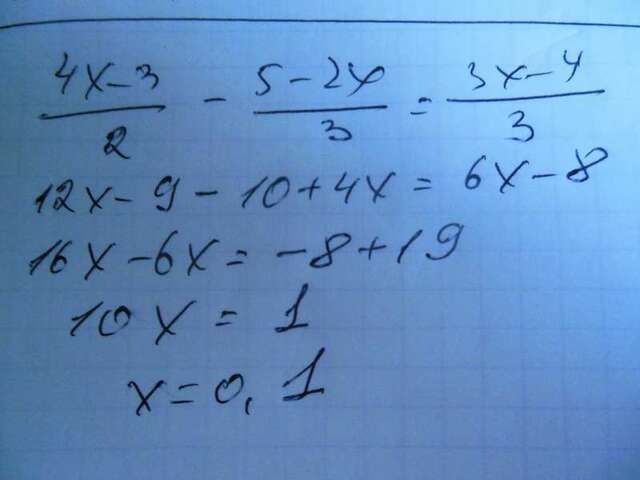 (4x-3)/2 - (5-2x)/3 = (3x-4)/3
12x-9-10+4x=6x-8
16x-6x=-8+19
10x=1
x=0,1